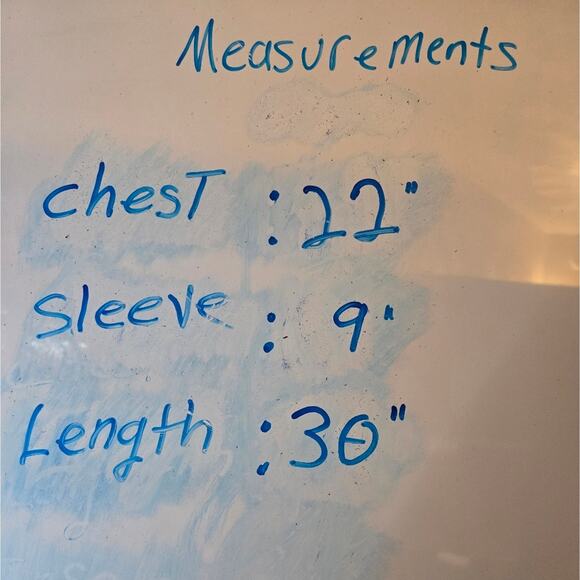 Measurements
chest : 22"
Sleeve : 9"
Length : 30"